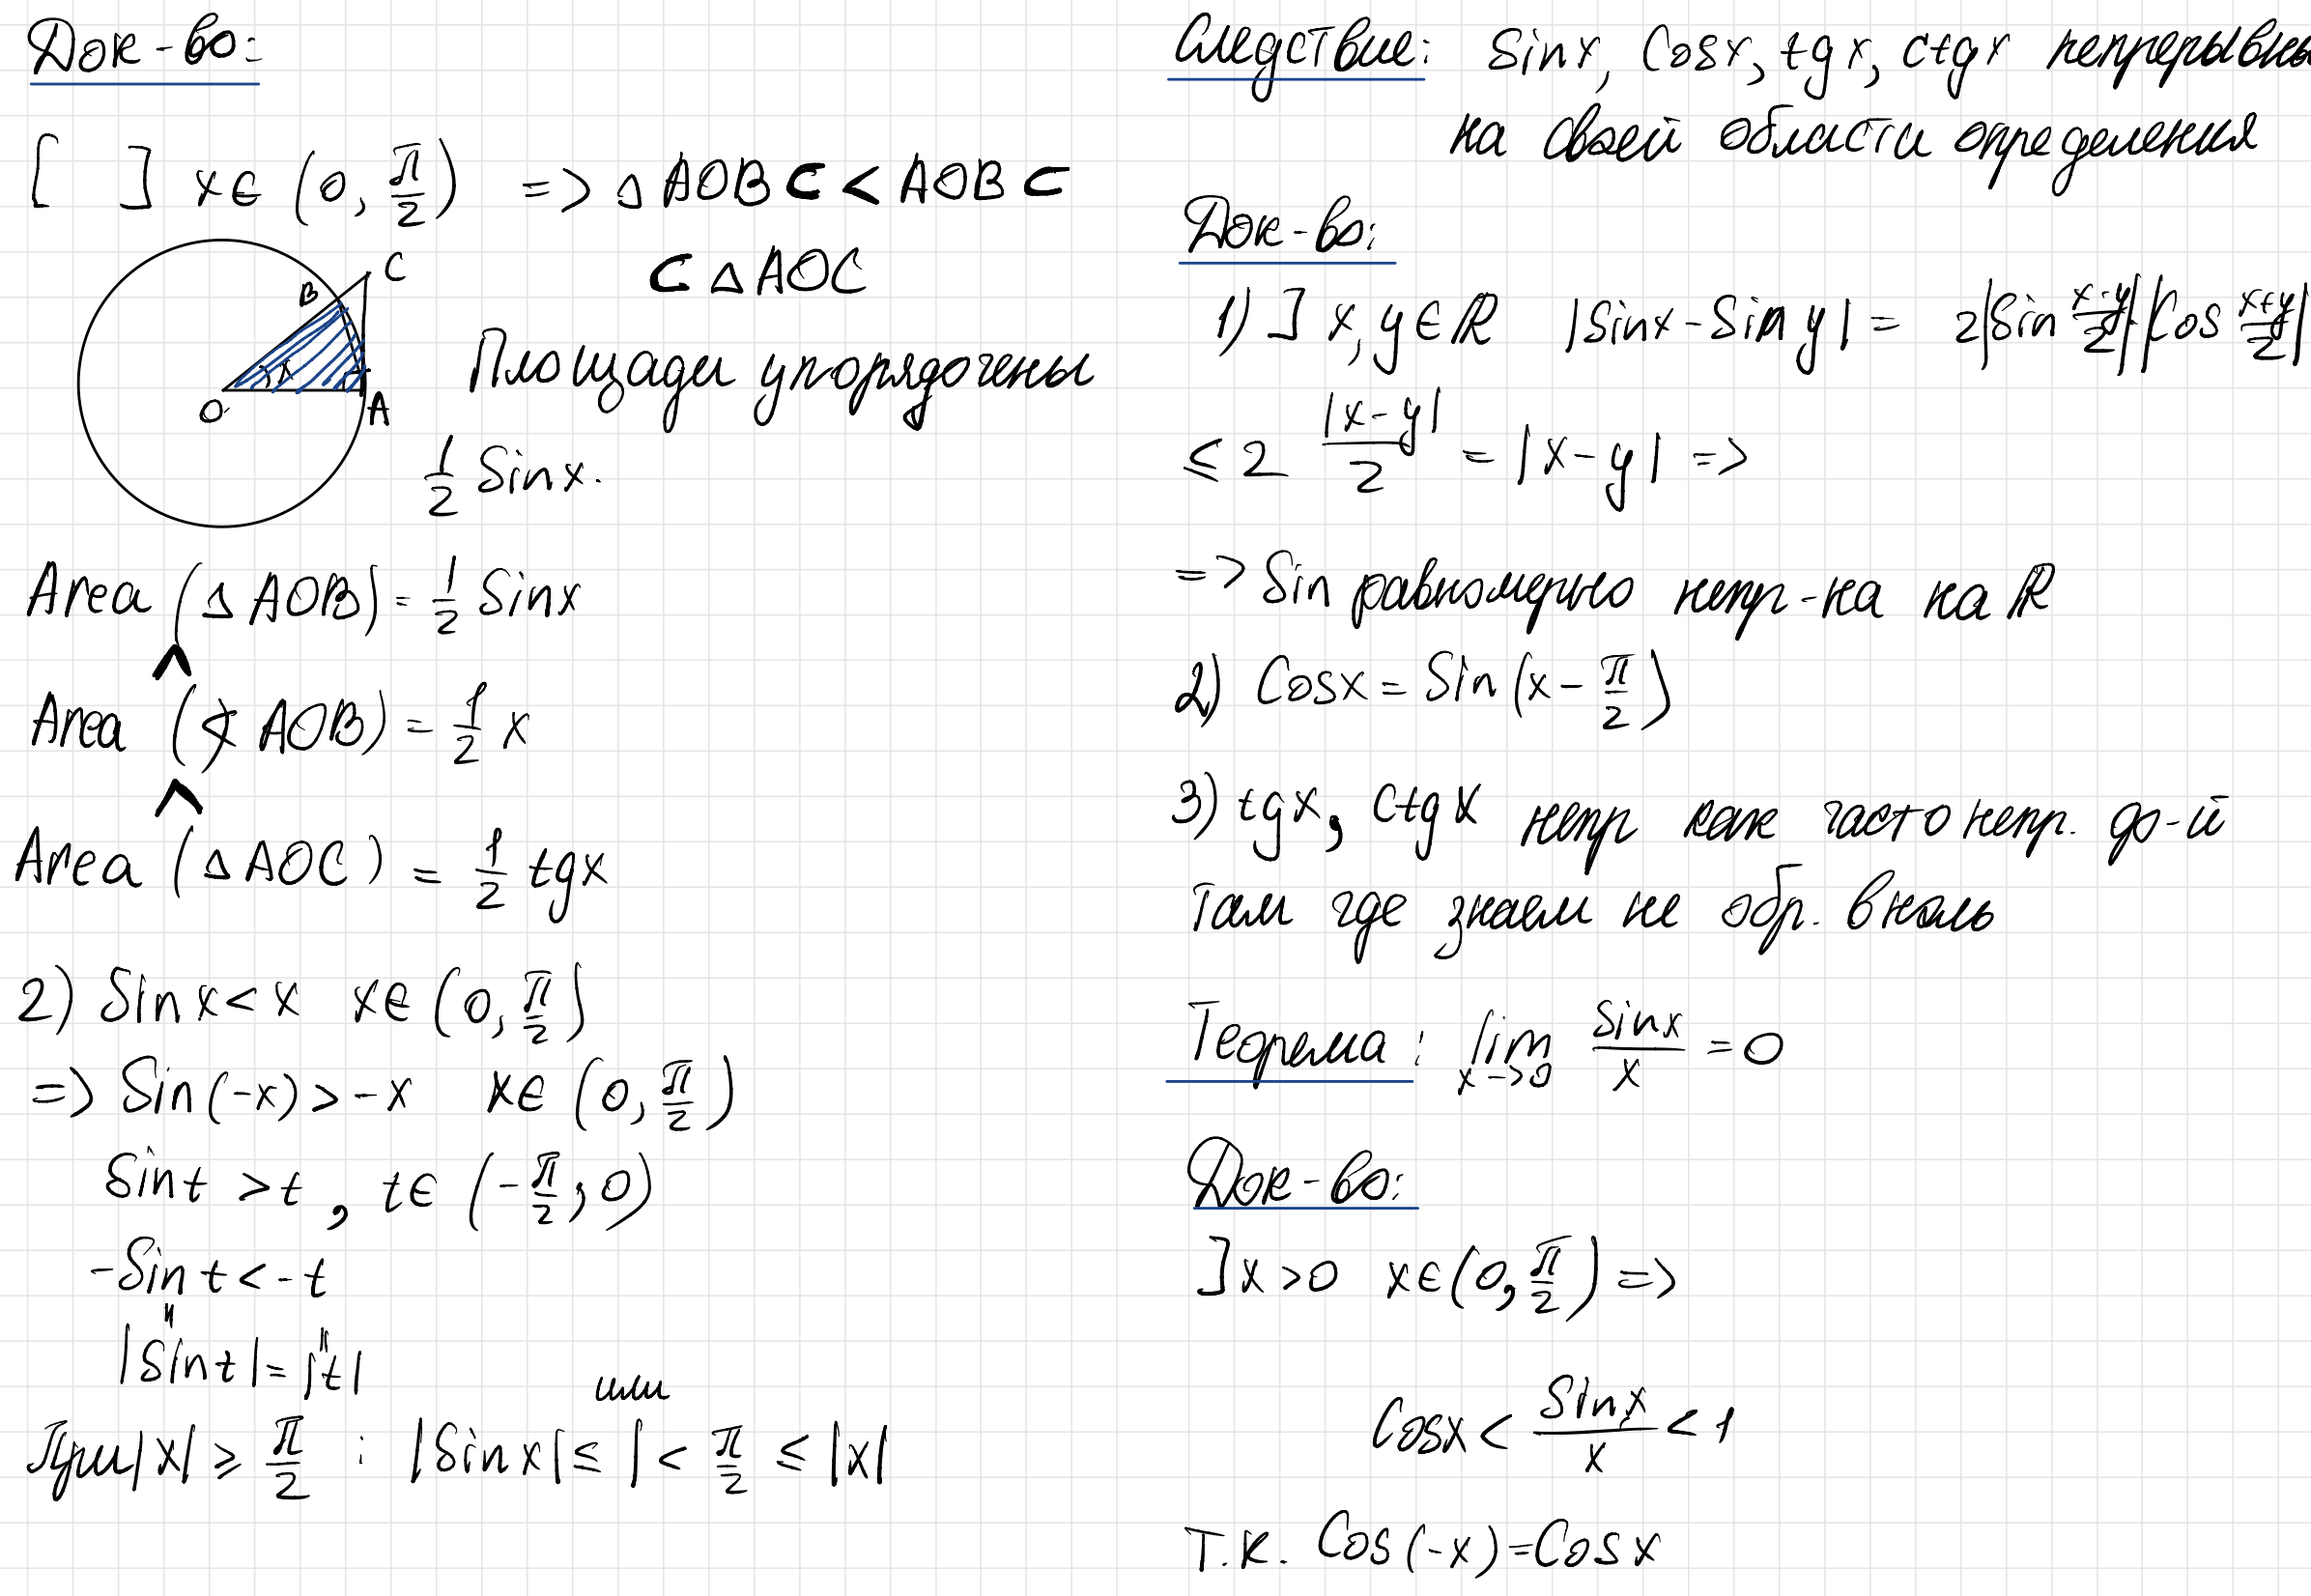 Док-во:
[ ] x ∈ (0, π/2) => △ AOB ⊂ ∢ AOB ⊂
⊂ △ AOC
B
C
x
O
A
Площади упорядочены
1/2 Sinx.
Area (△ AOB) = 1/2 Sinx
^
Area (∢ AOB) = 1/2 x
^
Area (△ AOC) = 1/2 tgx
2) Sinx < x x ∈ (0, π/2)
=> Sin(-x) > -x x ∈ (0, π/2)
Sin t > t, t ∈ (-π/2; 0)
-Sin t < -t
" "
|Sin t| = |t|
или
При |x| ⩾ π/2 : |Sinx| ≤ 1 < π/2 ≤ |x|
Следствие: Sinx, Cosx, tgx, ctgx непрерывны
на своей области определения
Док-во:
1) ] x, y ∈ ℝ |Sinx - Sin y| = 2|Sin (x-y)/2| |Cos (x+y)/2|
≤ 2 |x-y|/2 = |x-y| =>
=> Sin равномерно непр-на на ℝ
2) Cosx = Sin(x - π/2)
3) tgx, Ctgx непр как частo непр. ф-й
там где знаем не обр. в ноль
Теорема: lim x->0 Sinx/x = 0
Док-во:
] x > 0 x ∈ (0, π/2) =>
Cosx < Sinx/x < 1
Т.К. Cos(-x) = Cosx